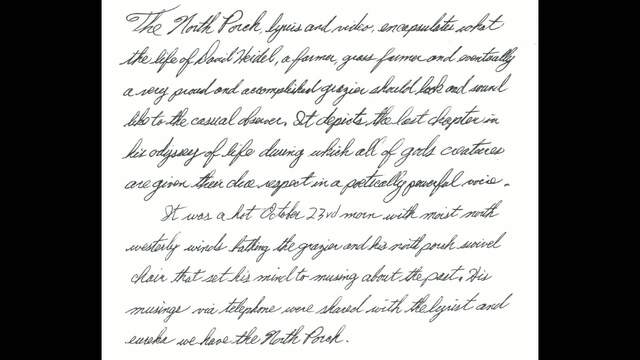 The North Porch, lyrics and video, encapsulates what
the life of David Heidel, a farmer, grass farmer and eventually
a very proud and accomplished grazier should look and sound
like to the casual observer. It depicts the last chapter in
his odyssey of life during which all of gods creatures
are given their due respect in a poetically powerful voice.
It was a hot October 23rd morn with moist north
westerly winds bathing the grazier and his north porch swivel
chair that set his mind to musing about the past. His
musings via telephone were shared with the lyrist and
eureka we have the North Porch.